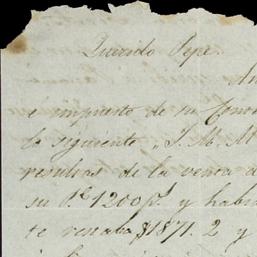 Querido Pepe
An
é impuesto de su Cono
lo siguiente, J. M. M
resultas de la venta d
su Pe 1200 p. y habi
te restaba $1871. 2 y